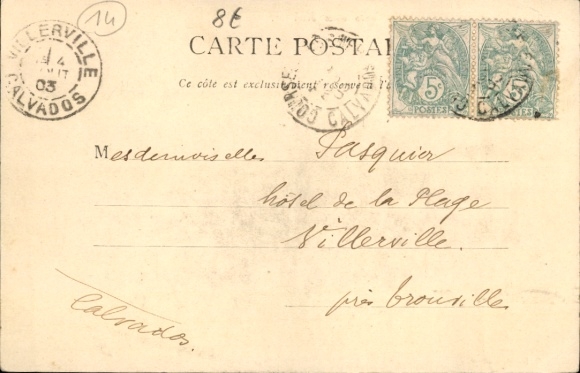 14
8€
CARTE POSTAL
Ce côté est exclusivement réservé à l'
VILLERVILLE
4
AOUT
03
CALVADOS
CALVADOS
5c
POSTES
POSTES
Mesdemoiselles Pasquier
hôtel de la Plage
Villerville.
près Trouville
Calvados.